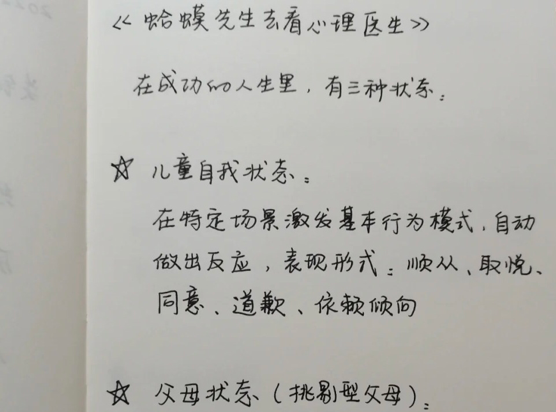 《蛤蟆先生去看心理医生》
在成功的人生里，有三种状态：
☆ 儿童自我状态：
在特定场景激发基本行为模式，自动
做出反应，表现形式：顺从、取悦、
同意、道歉、依赖倾向
☆ 父母状态（挑剔型父母）：